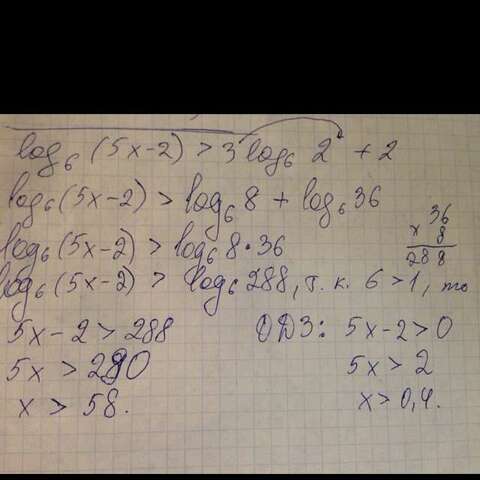 log₆ (5x-2) > 3 log₆ 2 + 2
log₆ (5x-2) > log₆ 8 + log₆ 36
36
x 8
288
log₆ (5x-2) > log₆ 8 · 36
log₆ (5x-2) > log₆ 288, т. к. 6 > 1, то
5x - 2 > 288
5x > 290
x > 58.
ОДЗ: 5x-2 > 0
5x > 2
x > 0,4.